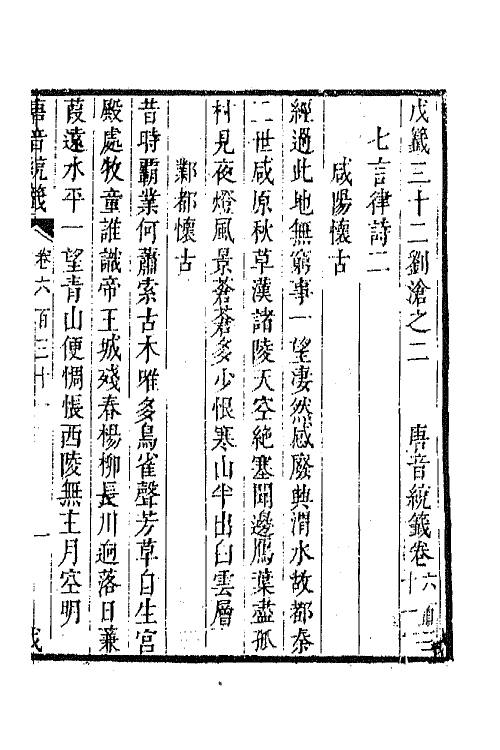 戊籤三十二劉滄之二　唐音統籤卷六百三十一
七言律詩二
咸陽懷古
經過此地無窮事一望淒然感廢興渭水故都秦
二世咸原秋草漢諸陵天空絶塞聞邊鴈葉盡孤
村見夜燈風景蒼蒼多少恨寒山半出白雲層
鄴都懷古
昔時霸業何蕭索古木唯多鳥雀聲芳草自生宮
殿處牧童誰識帝王城殘春楊柳長川迥落日蒹
葭遠水平一望青山便惆悵西陵無主月空明
唐音統籤　卷六百三十一　一　戊